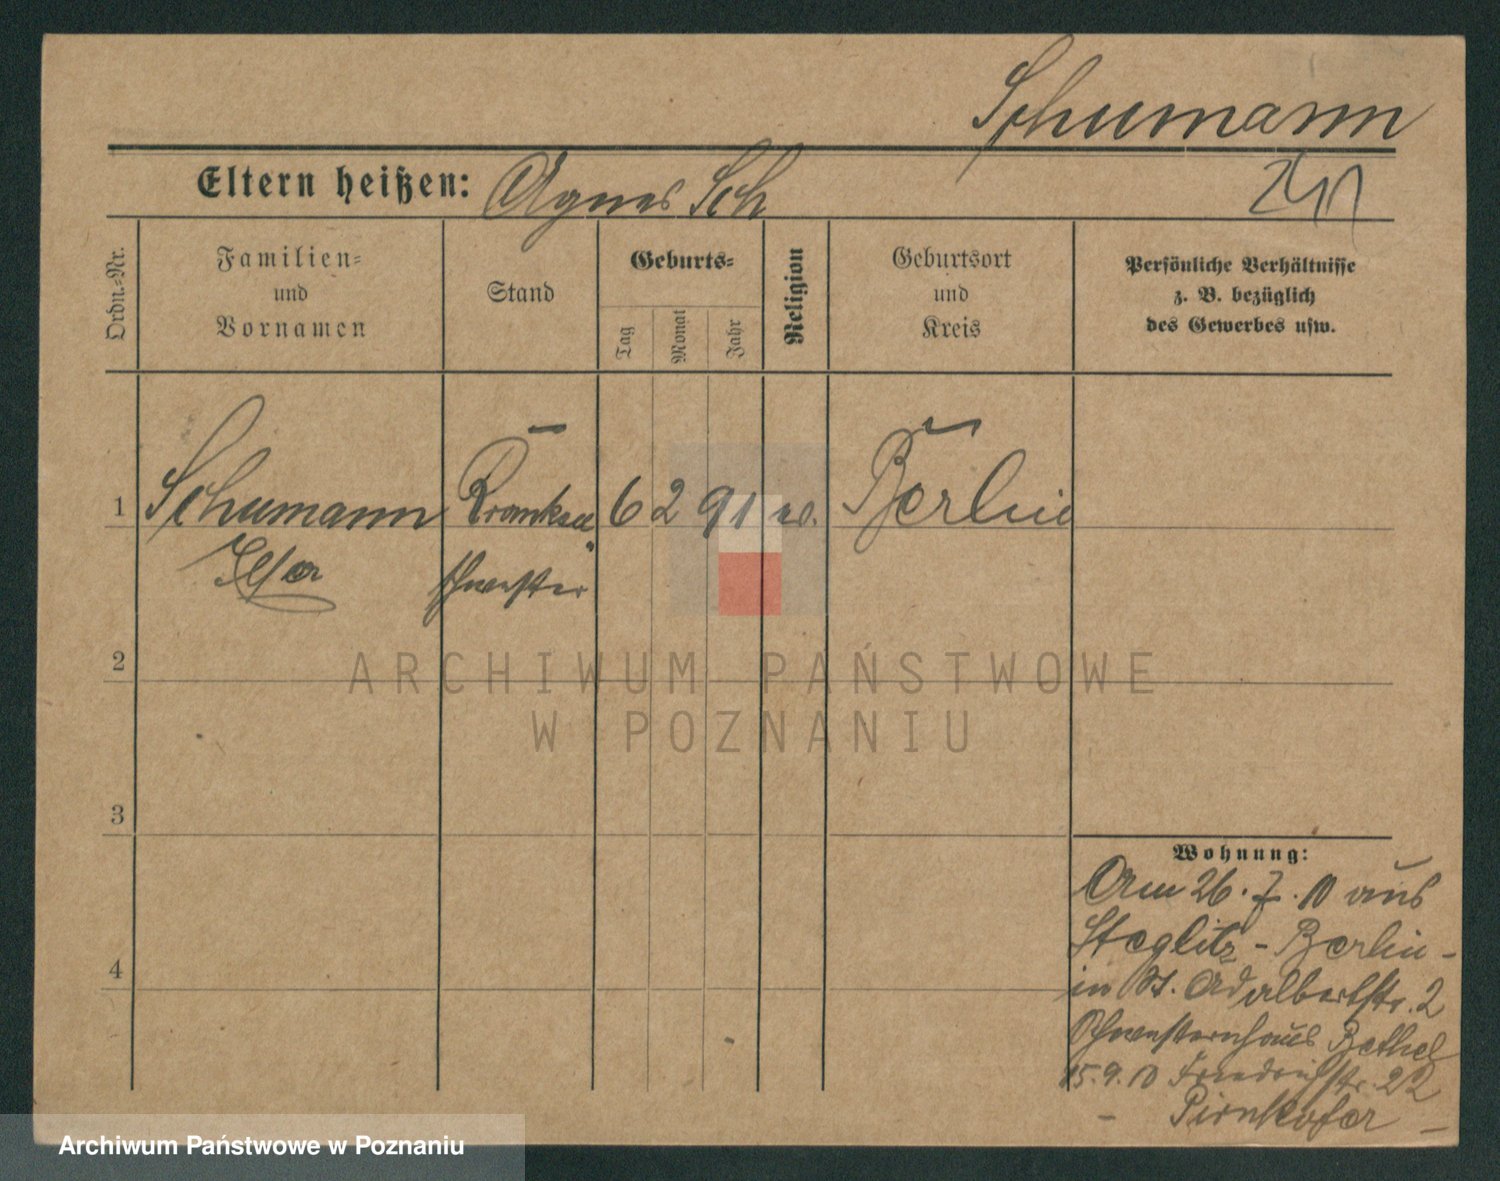 Schumann
Eltern heißen: Agnes Sch
Ordn.-Nr.
Familien-
und
Vornamen
Stand
Geburts-
Tag
Monat
Jahr
Religion
Geburtsort
und
Kreis
Persönliche Verhältnisse
z. B. bezüglich
des Gewerbes usw.
1 Schumann Kranken 6 2 91 Berlin
schwester
2
ARCHIWUM PAŃSTWOWE
W POZNANIU
3
Wohnung:
Am 26.7.10 aus
Steglitz - Berlin -
in St. Adalbertstr. 2
Schwesternhaus Bethel
4
15.9.10 Friedrichstr. 22
Archiwum Państwowe w Poznaniu